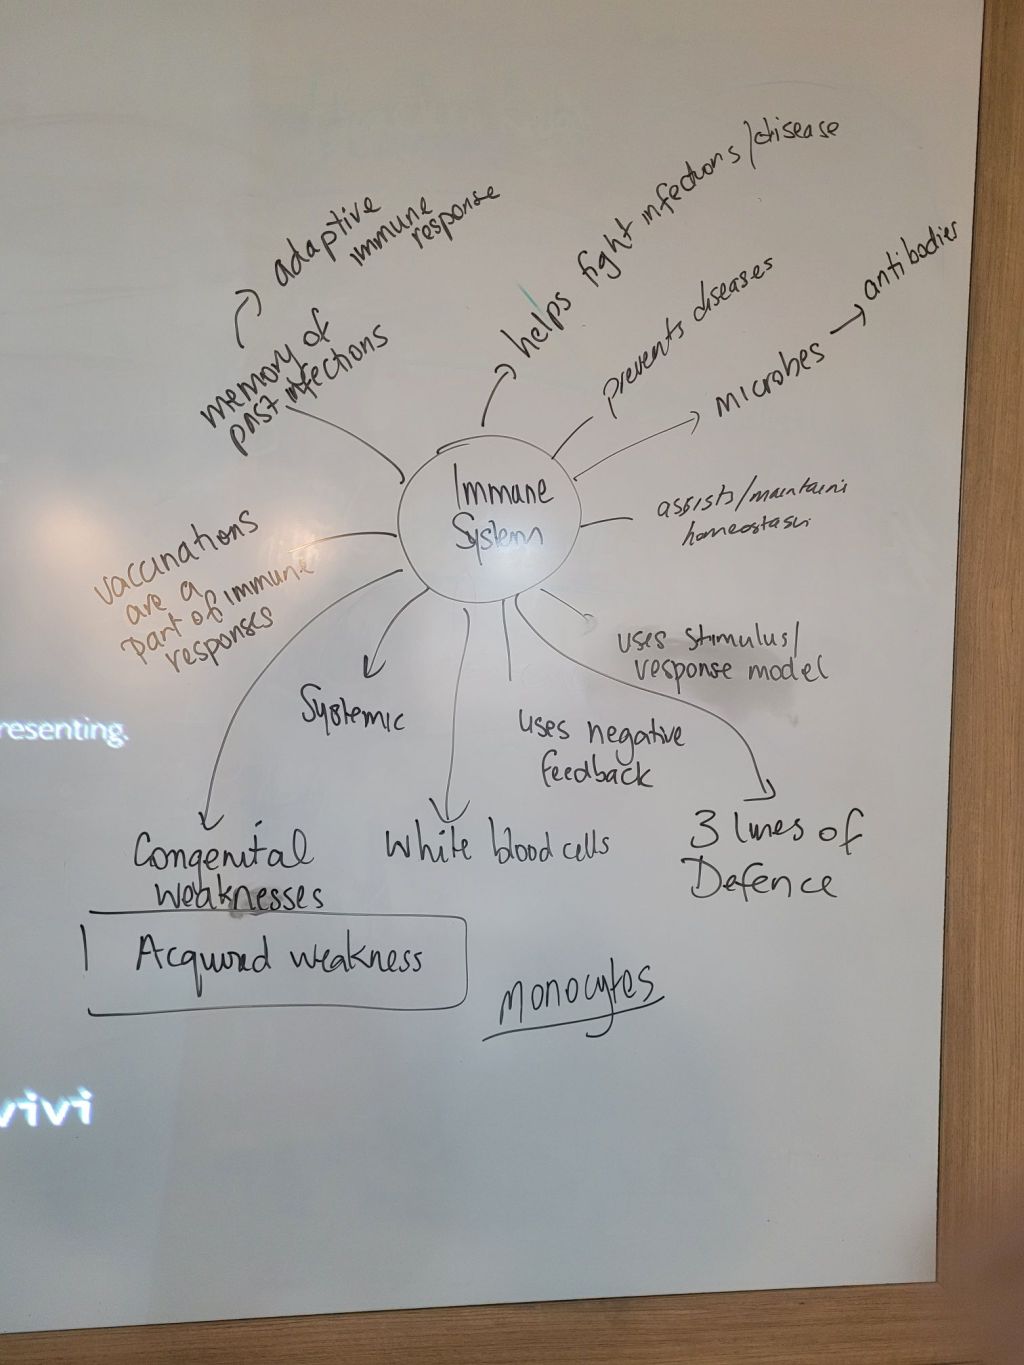 adaptive
immune
response
memory of
past infections
helps fight infections/disease
prevents diseases
microbes → antibodies
Immune
System
assists/maintains
homeostasis
vaccinations
are a
part of immune
responses
uses stimulus/
response model
Systemic
uses negative
feedback
resenting.
Congenital
weaknesses
White blood cells
3 lines of
Defence
Acquired weakness
monocytes
vivi